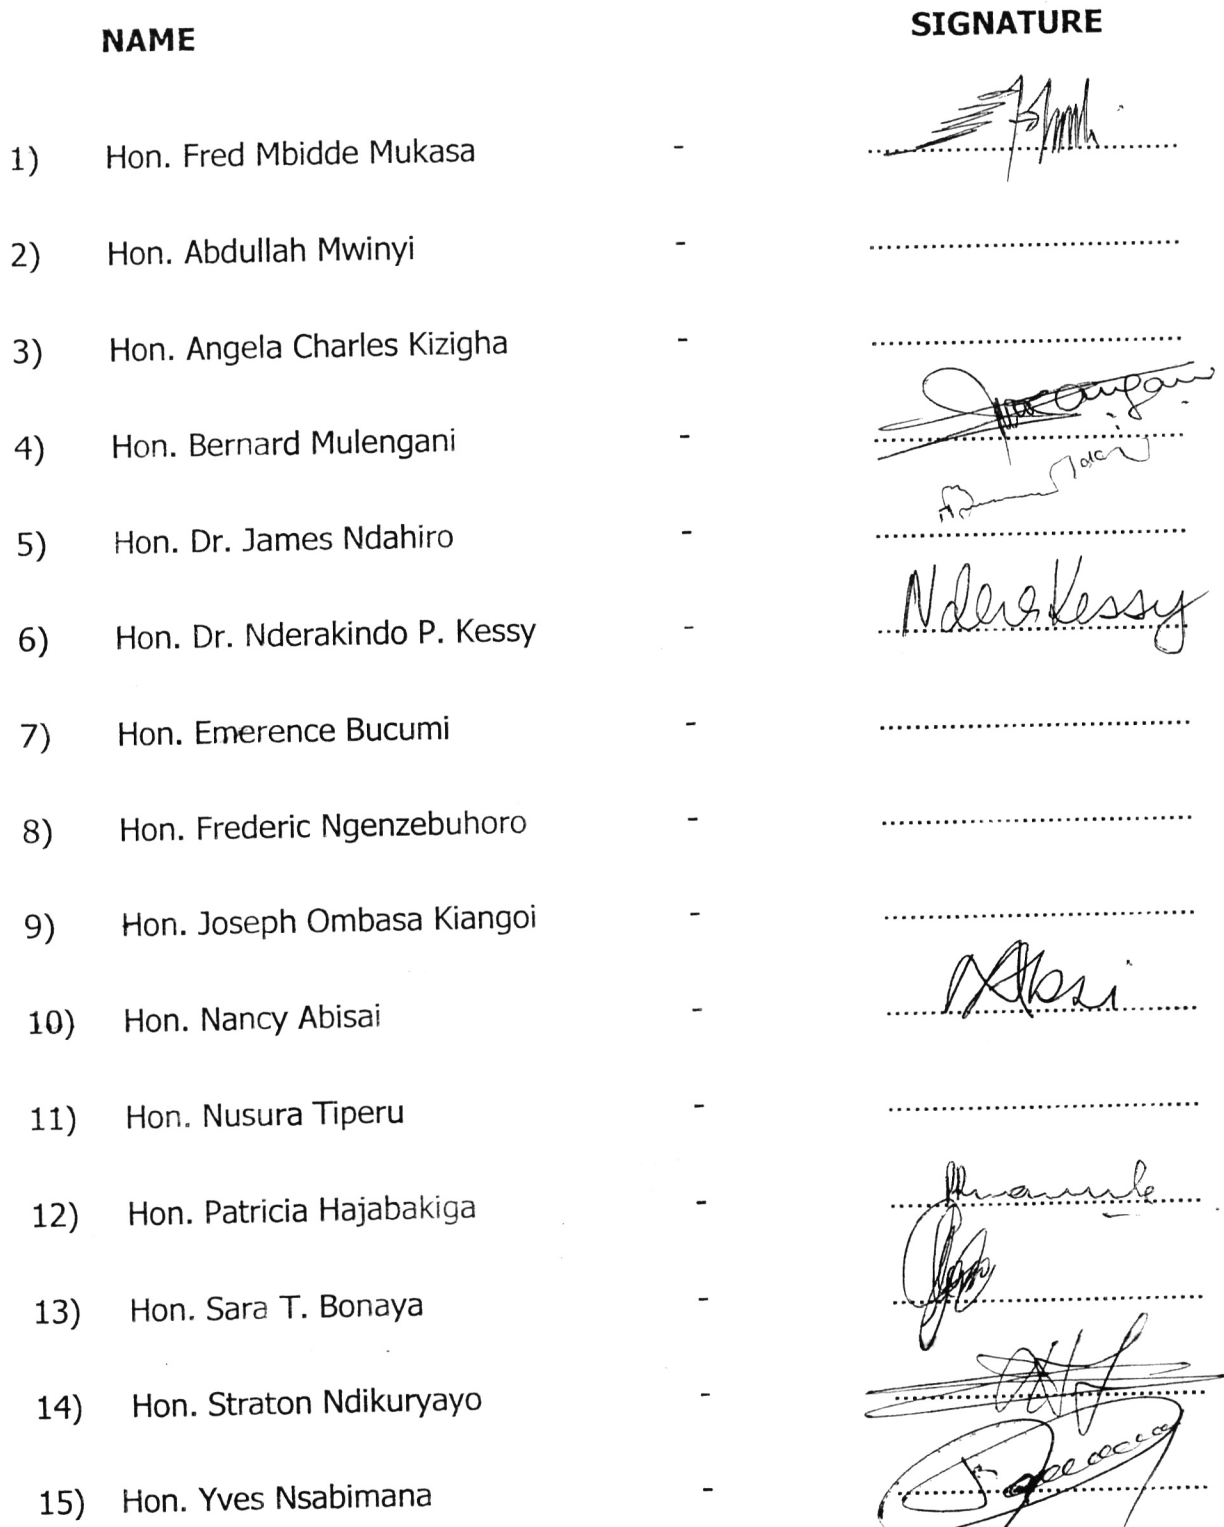 NAME SIGNATURE
1) Hon. Fred Mbidde Mukasa - ....................................
2) Hon. Abdullah Mwinyi - ....................................
3) Hon. Angela Charles Kizigha - ....................................
4) Hon. Bernard Mulengani - ....................................
5) Hon. Dr. James Ndahiro - ....................................
6) Hon. Dr. Nderakindo P. Kessy - Ndera Kessy
7) Hon. Emerence Bucumi - ....................................
8) Hon. Frederic Ngenzebuhoro - ....................................
9) Hon. Joseph Ombasa Kiangoi - ....................................
10) Hon. Nancy Abisai - ....................................
11) Hon. Nusura Tiperu - ....................................
12) Hon. Patricia Hajabakiga - ....................................
13) Hon. Sara T. Bonaya - ....................................
14) Hon. Straton Ndikuryayo - ....................................
15) Hon. Yves Nsabimana - ....................................